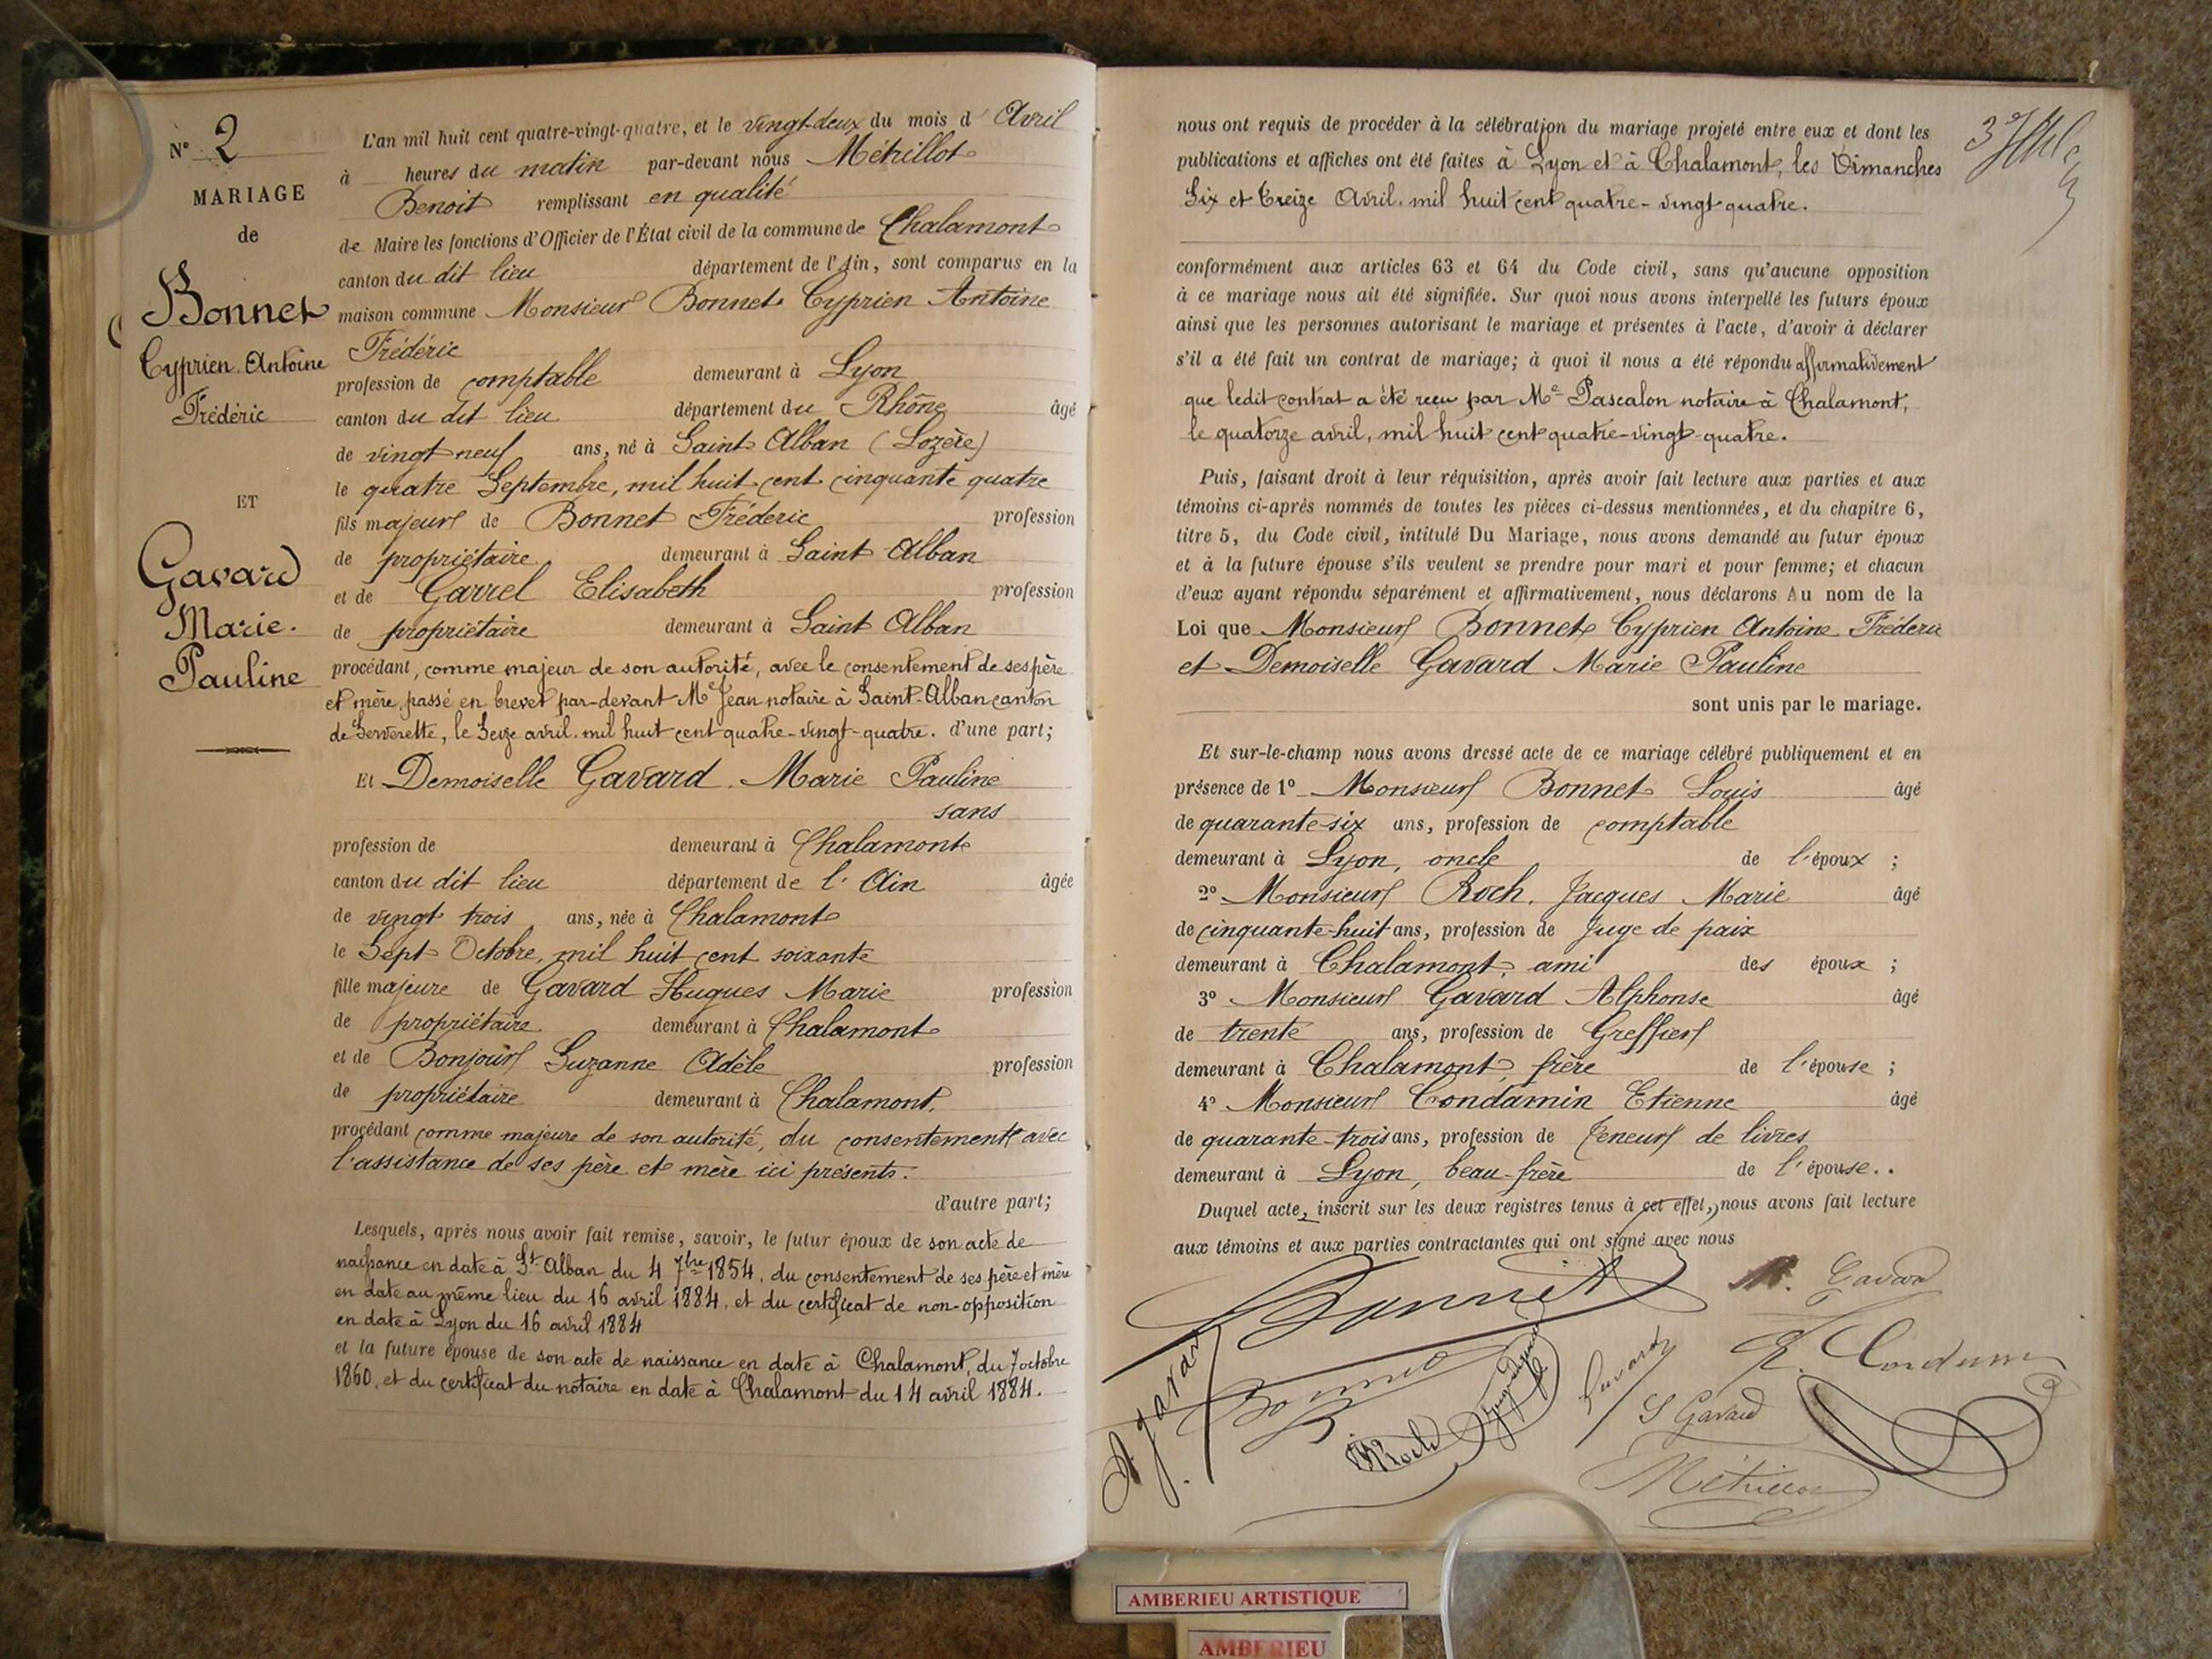 N° 2
MARIAGE
de
Bonnet
Cyprien Antoine
Frédéric
ET
Gavard
Marie
Pauline
L'an mil huit cent quatre-vingt-quatre, et le vingt-deux du mois d' Avril
à heures du matin par-devant nous Métrillot
Benoit remplissant en qualité
de Maire les fonctions d'Officier de l'État civil de la commune de Chalamont
canton du dit lieu département de l'Ain, sont comparus en la
maison commune Monsieur Bonnet Cyprien Antoine
Frédéric
profession de comptable demeurant à Lyon
canton du dit lieu département du Rhône âgé
de vingt neuf ans, né à Saint Alban (Lozère)
le quatre Septembre, mil huit cent cinquante quatre
fils majeur de Bonnet Fréderic profession
de propriétaire demeurant à Saint Alban
et de Garrel Elisabeth profession
de propriétaire demeurant à Saint Alban
procédant, comme majeur de son autorité, avec le consentement de ses père
et mère, passé en brevet par-devant Me Jean notaire à Saint-Alban canton
de Serverette, le Seize avril. mil huit cent quatre-vingt-quatre. d'une part;
Et Demoiselle Gavard. Marie Pauline
sans
profession de demeurant à Chalamont
canton du dit lieu département de l'Ain âgée
de vingt trois ans, née à Chalamont
le Sept Octobre, mil huit cent soixante
fille majeure de Gavard Hugues Marie profession
de propriétaire demeurant à Chalamont
et de Bonjour Suzanne Adèle profession
de propriétaire demeurant à Chalamont,
procédant comme majeure de son autorité, du consentement avec
l'assistance de ses père et mère ici présents.
d'autre part;
Lesquels, après nous avoir fait remise, savoir, le futur époux de son acte de
naissance en date à St Alban du 4 7bre 1854, du consentement de ses père et mère
en date au même lieu du 16 avril 1884, et du certificat de non-opposition
en date à Lyon du 16 avril 1884
et la future épouse de son acte de naissance en date à Chalamont, du 7 octobre
1860, et du certificat du notaire en date à Chalamont du 14 avril 1884.
nous ont requis de procéder à la célébration du mariage projeté entre eux et dont les
publications et affiches ont été faites à Lyon et à Chalamont, les Dimanches
Six et Treize Avril. mil huit cent quatre-vingt-quatre.
conformément aux articles 63 et 64 du Code civil, sans qu'aucune opposition
à ce mariage nous ait été signifiée. Sur quoi nous avons interpellé les futurs époux
ainsi que les personnes autorisant le mariage et présentes à l'acte, d'avoir à déclarer
s'il a été fait un contrat de mariage; à quoi il nous a été répondu affirmativement
que ledit contrat a été reçu par Me Pascalon notaire à Chalamont,
le quatorze avril, mil huit cent quatre-vingt-quatre.
Puis, faisant droit à leur réquisition, après avoir fait lecture aux parties et aux
témoins ci-après nommés de toutes les pièces ci-dessus mentionnées, et du chapitre 6,
titre 5, du Code civil, intitulé Du Mariage, nous avons demandé au futur époux
et à la future épouse s'ils veulent se prendre pour mari et pour femme; et chacun
d'eux ayant répondu séparément et affirmativement, nous déclarons Au nom de la
Loi que Monsieur Bonnet Cyprien Antoine Fréderic
et Demoiselle Gavard Marie Pauline
sont unis par le mariage.
Et sur-le-champ nous avons dressé acte de ce mariage célébré publiquement et en
présence de 1° Monsieur Bonnet Louis âgé
de quarante-six ans, profession de comptable
demeurant à Lyon, oncle de l'époux ;
2° Monsieur Roch, Jacques Marie âgé
de cinquante-huit ans, profession de Juge de paix
demeurant à Chalamont, ami des époux ;
3° Monsieur Gavard Alphonse âgé
de trente ans, profession de Greffier
demeurant à Chalamont, frère de l'épouse ;
4° Monsieur Condamin Etienne âgé
de quarante-trois ans, profession de Teneur de livres
demeurant à Lyon, beau-frère de l'épouse..
Duquel acte, inscrit sur les deux registres tenus à cet effet, nous avons fait lecture
aux témoins et aux parties contractantes qui ont signé avec nous
Bonnet
M. Gavard
A gavard
Bonnet
Roch
Gavard
E. Condamin
S Gavard
Métrillot
AMBERIEU ARTISTIQUE
AMBERIEU